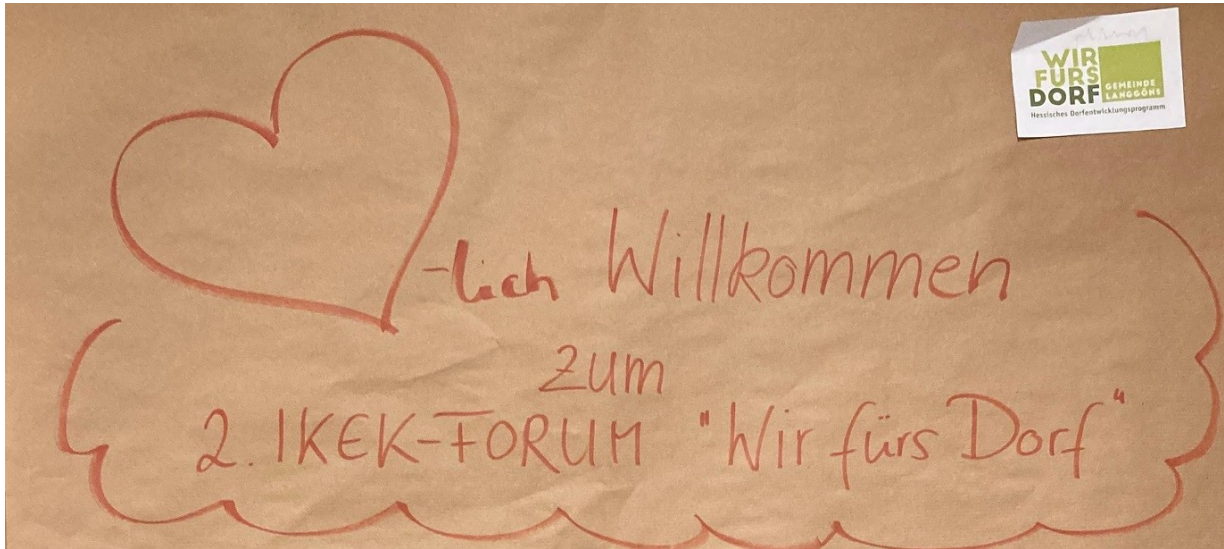 WIR
FÜRS
DORF
GEMEINDE
LANGGÖNS
Hessisches Dorfentwicklungsprogramm
-lich Willkommen
zum
2. IKEK-FORUM "Wir fürs Dorf"